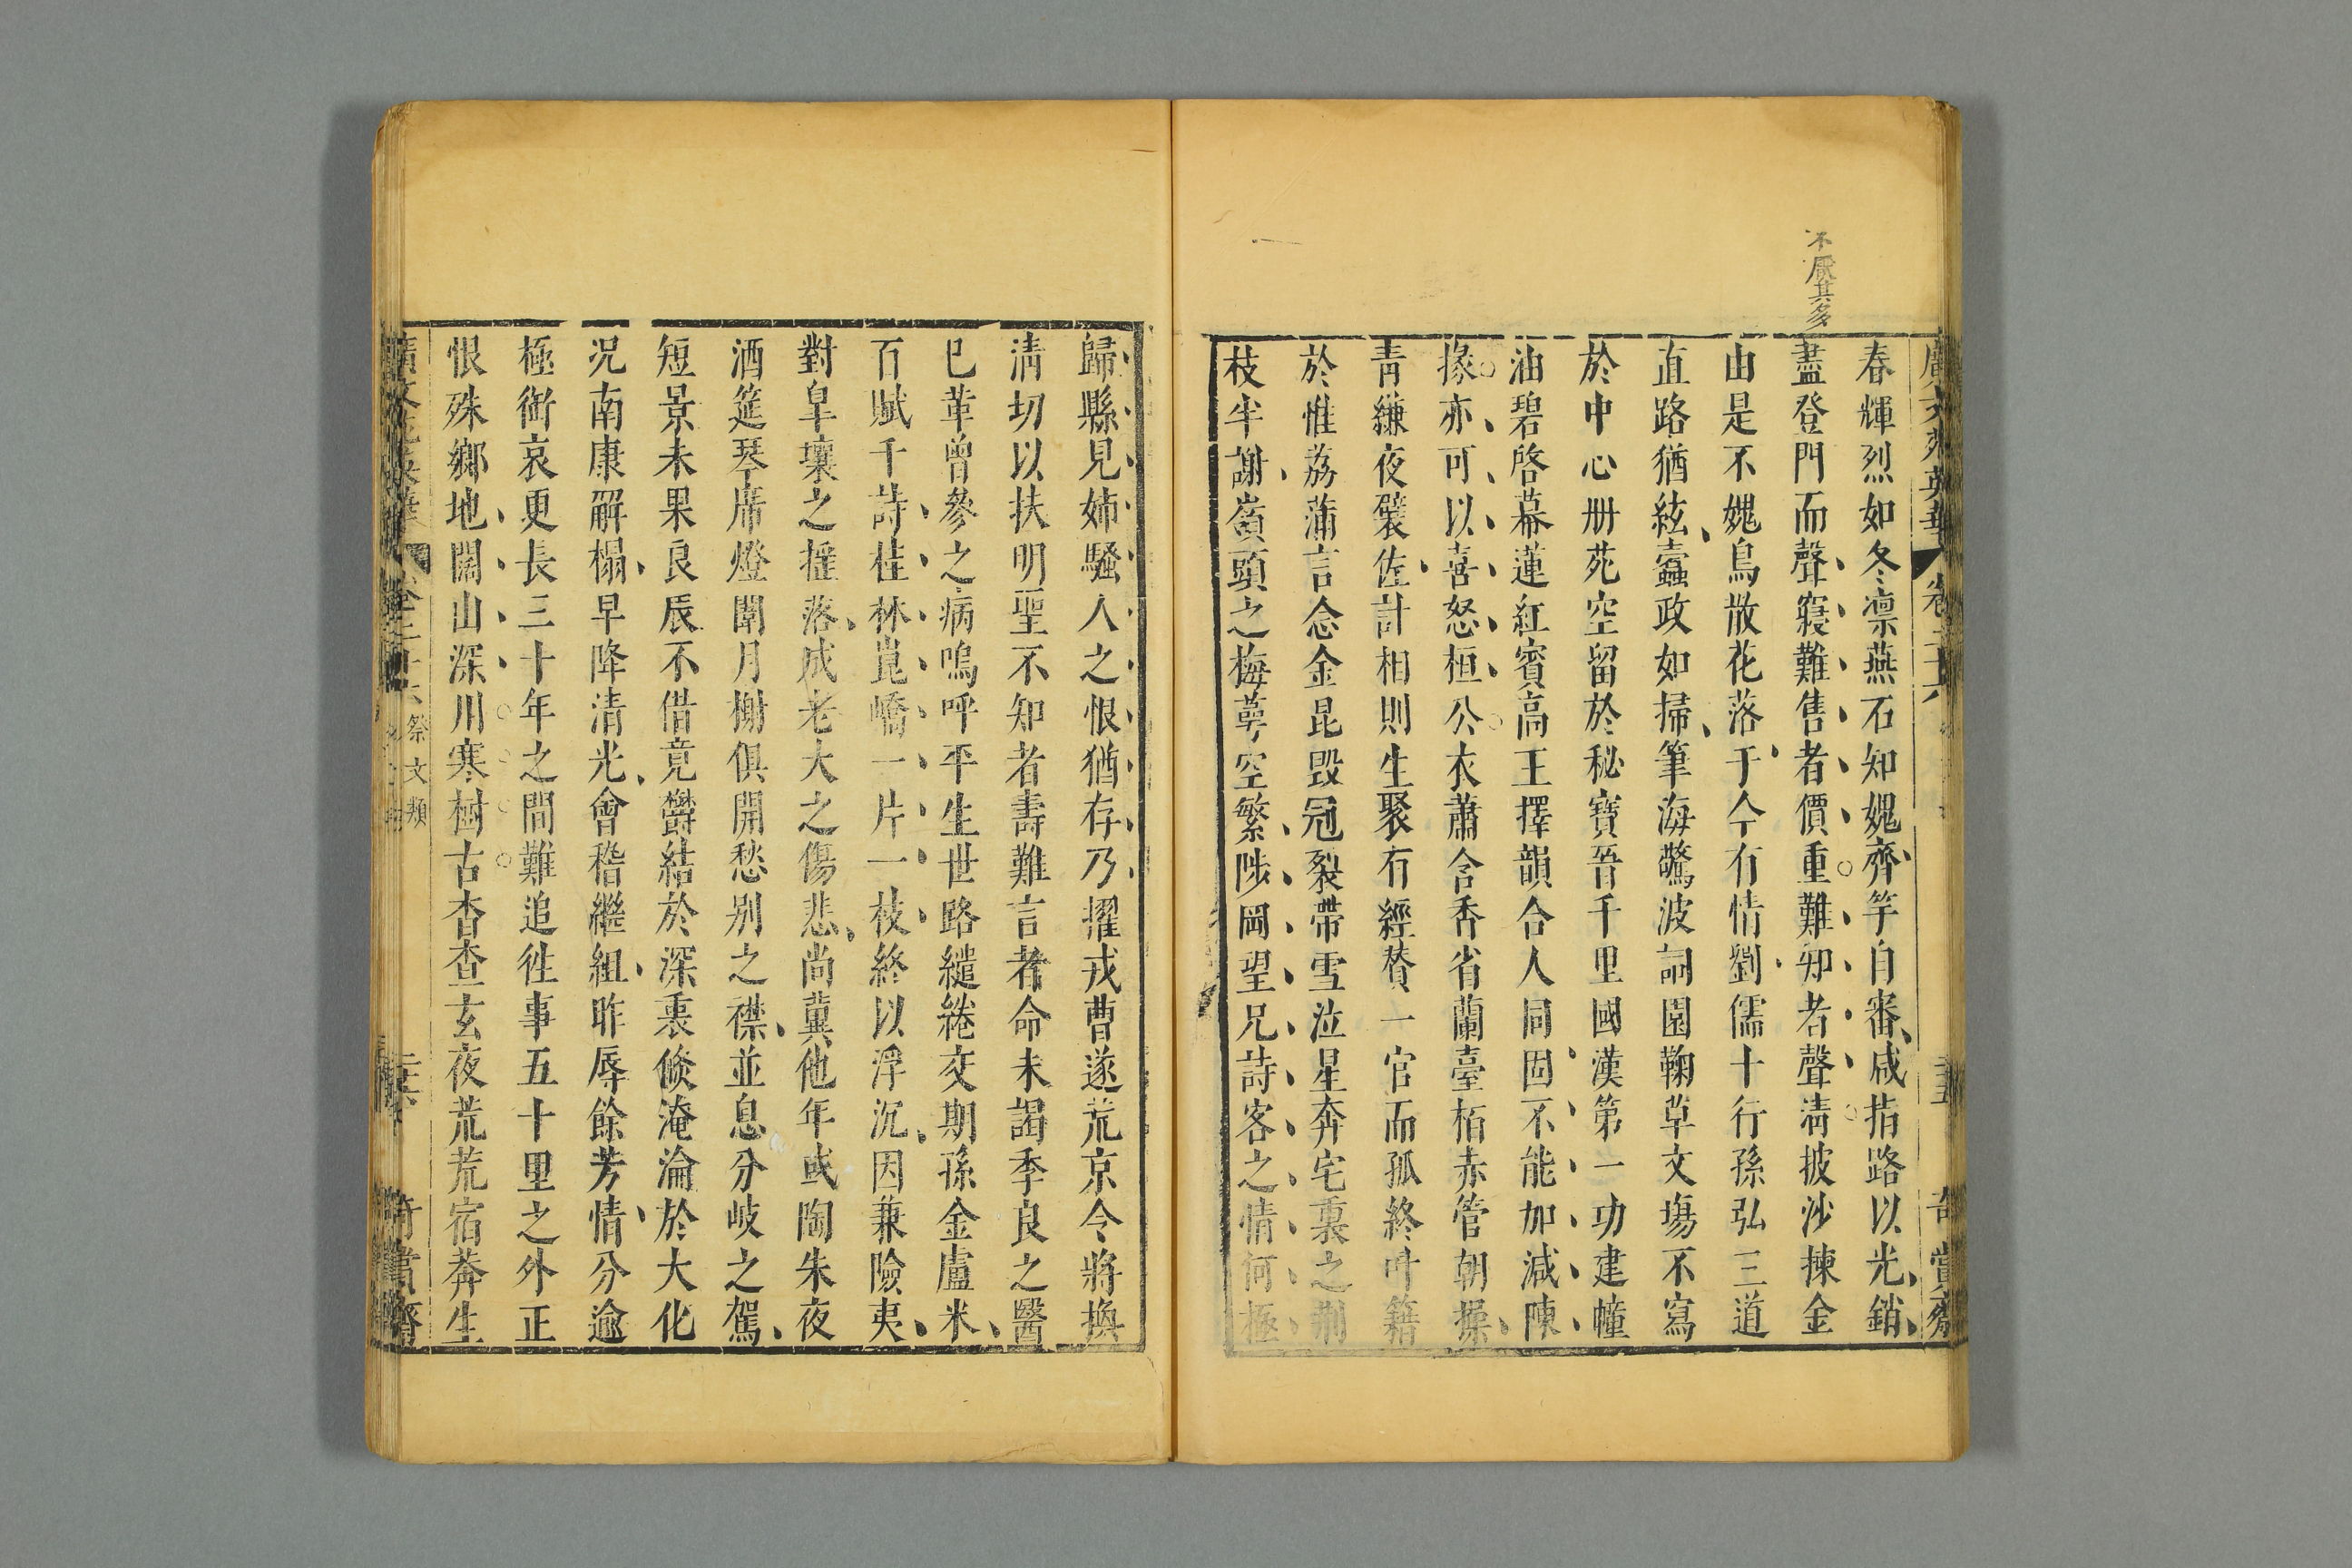 不厭其多
春輝烈如冬凛燕石知媿齊竽自審咸指路以光銷
盡登門而聲寢難售者價重難知者聲淸披沙揀金
由是不媿鳥散花落于今有情劉儒十行孫弘三道
直路猶絃蠹政如掃筆海驚波詞園鞠草文塲不寫
於中心册苑空留於秘寶晉千里國漢第一功建幢
油碧啓幕蓮紅賓高王擇韻合人同固不能加減陳
掾亦可以喜怒桓公衣蕭含香省蘭臺栢赤管朝操
靑縑夜襞佐計相則生聚有經賛一官而孤終叶籍
於惟荔蒲言念金昆毀冠裂帶雪泣星奔宅裏之荆
枝半謝嶺頭之梅蕚空繁陟岡望兄詩客之情何極
歸縣見姉騷人之恨猶存乃擢戎曹遂荒京令將換
淸切以扶明聖不知者壽難言者命未謁季良之醫
巳革曾參之病嗚呼平生世路繾綣交期孫金盧米
百賦千詩桂林崑嶠一片一枝終以浮沉因兼險夷
對臯壤之摇落成老大之傷悲尚冀他年或陶朱夜
酒筵琴席燈闈月榭俱開愁别之襟並息分岐之駕
短景未果良辰不借竟欝結於深裏倐淹淪於大化
况南康解榻早降清光會稽繼組昨辱餘芳情分逾
極銜哀更長三十年之間難追徃事五十里之外正
恨殊鄉地闊山深川寒樹古杳杳玄夜荒荒宿莾生
祭文類